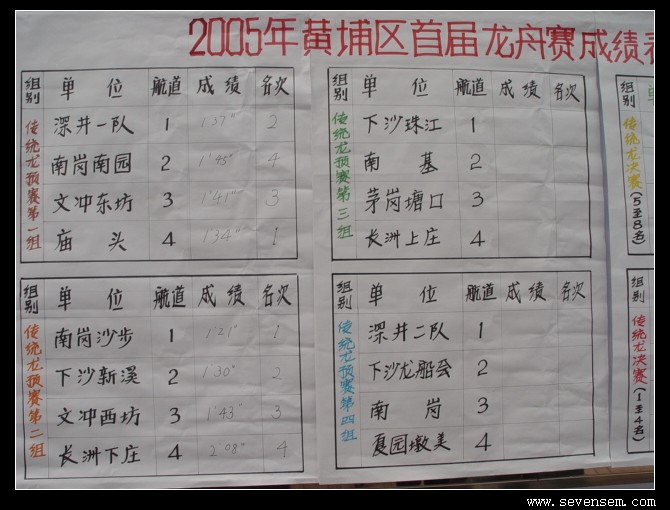 2005年黄埔区首届龙舟赛成绩表
组别 单位 航道 成绩 名次
传统龙预赛第一组
深井一队 1 1'37" 2
南岗南园 2 1'45" 4
文冲东坊 3 1'41" 3
庙头 4 1'34" 1
组别 单位 航道 成绩 名次
传统龙预赛第二组
南岗沙步 1 1'21" 1
下沙新溪 2 1'30" 2
文冲西坊 3 1'43" 3
长洲下庄 4 2'08" 4
组别 单位 航道 成绩 名次
传统龙预赛第三组
下沙珠江 1
南基 2
茅岗塘口 3
长洲上庄 4
组别 单位 航道 成绩 名次
传统龙预赛第四组
深井二队 1
下沙龙船会 2
南岗 3
夏园墩美 4
组别
传统龙决赛(5至8名)
组别
传统龙决赛(1至4名)
www.sevensem.com